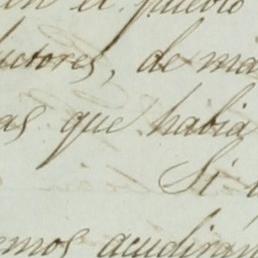 en el pueblo
uctores, de ma
as que habia
Si
emos acudirán